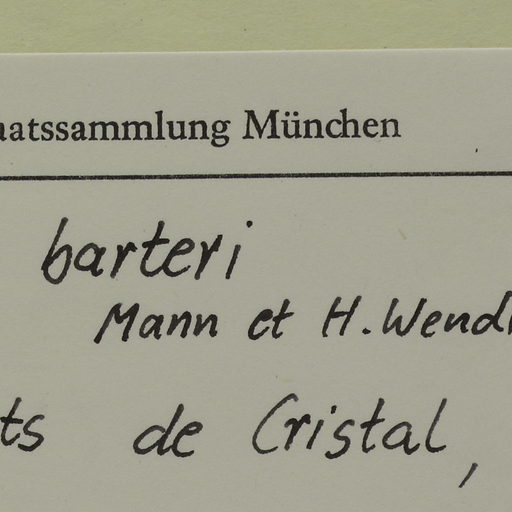 aatssammlung München
barteri
Mann et H. Wendl
ts de Cristal,